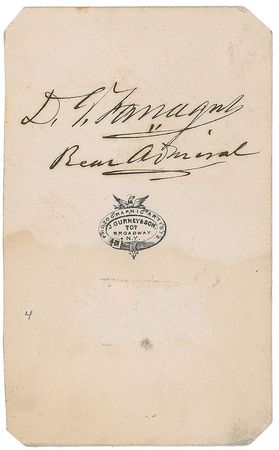 D. G. Farragut
Rear Admiral
PHOTOGRAPHIC ARTISTS
J. GURNEY & SON,
707
BROADWAY
N.Y.
4